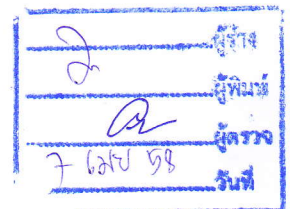 ผู้ร่าง
ผู้พิมพ์
ผู้ตรวจ
7 เมย 58 วันที่